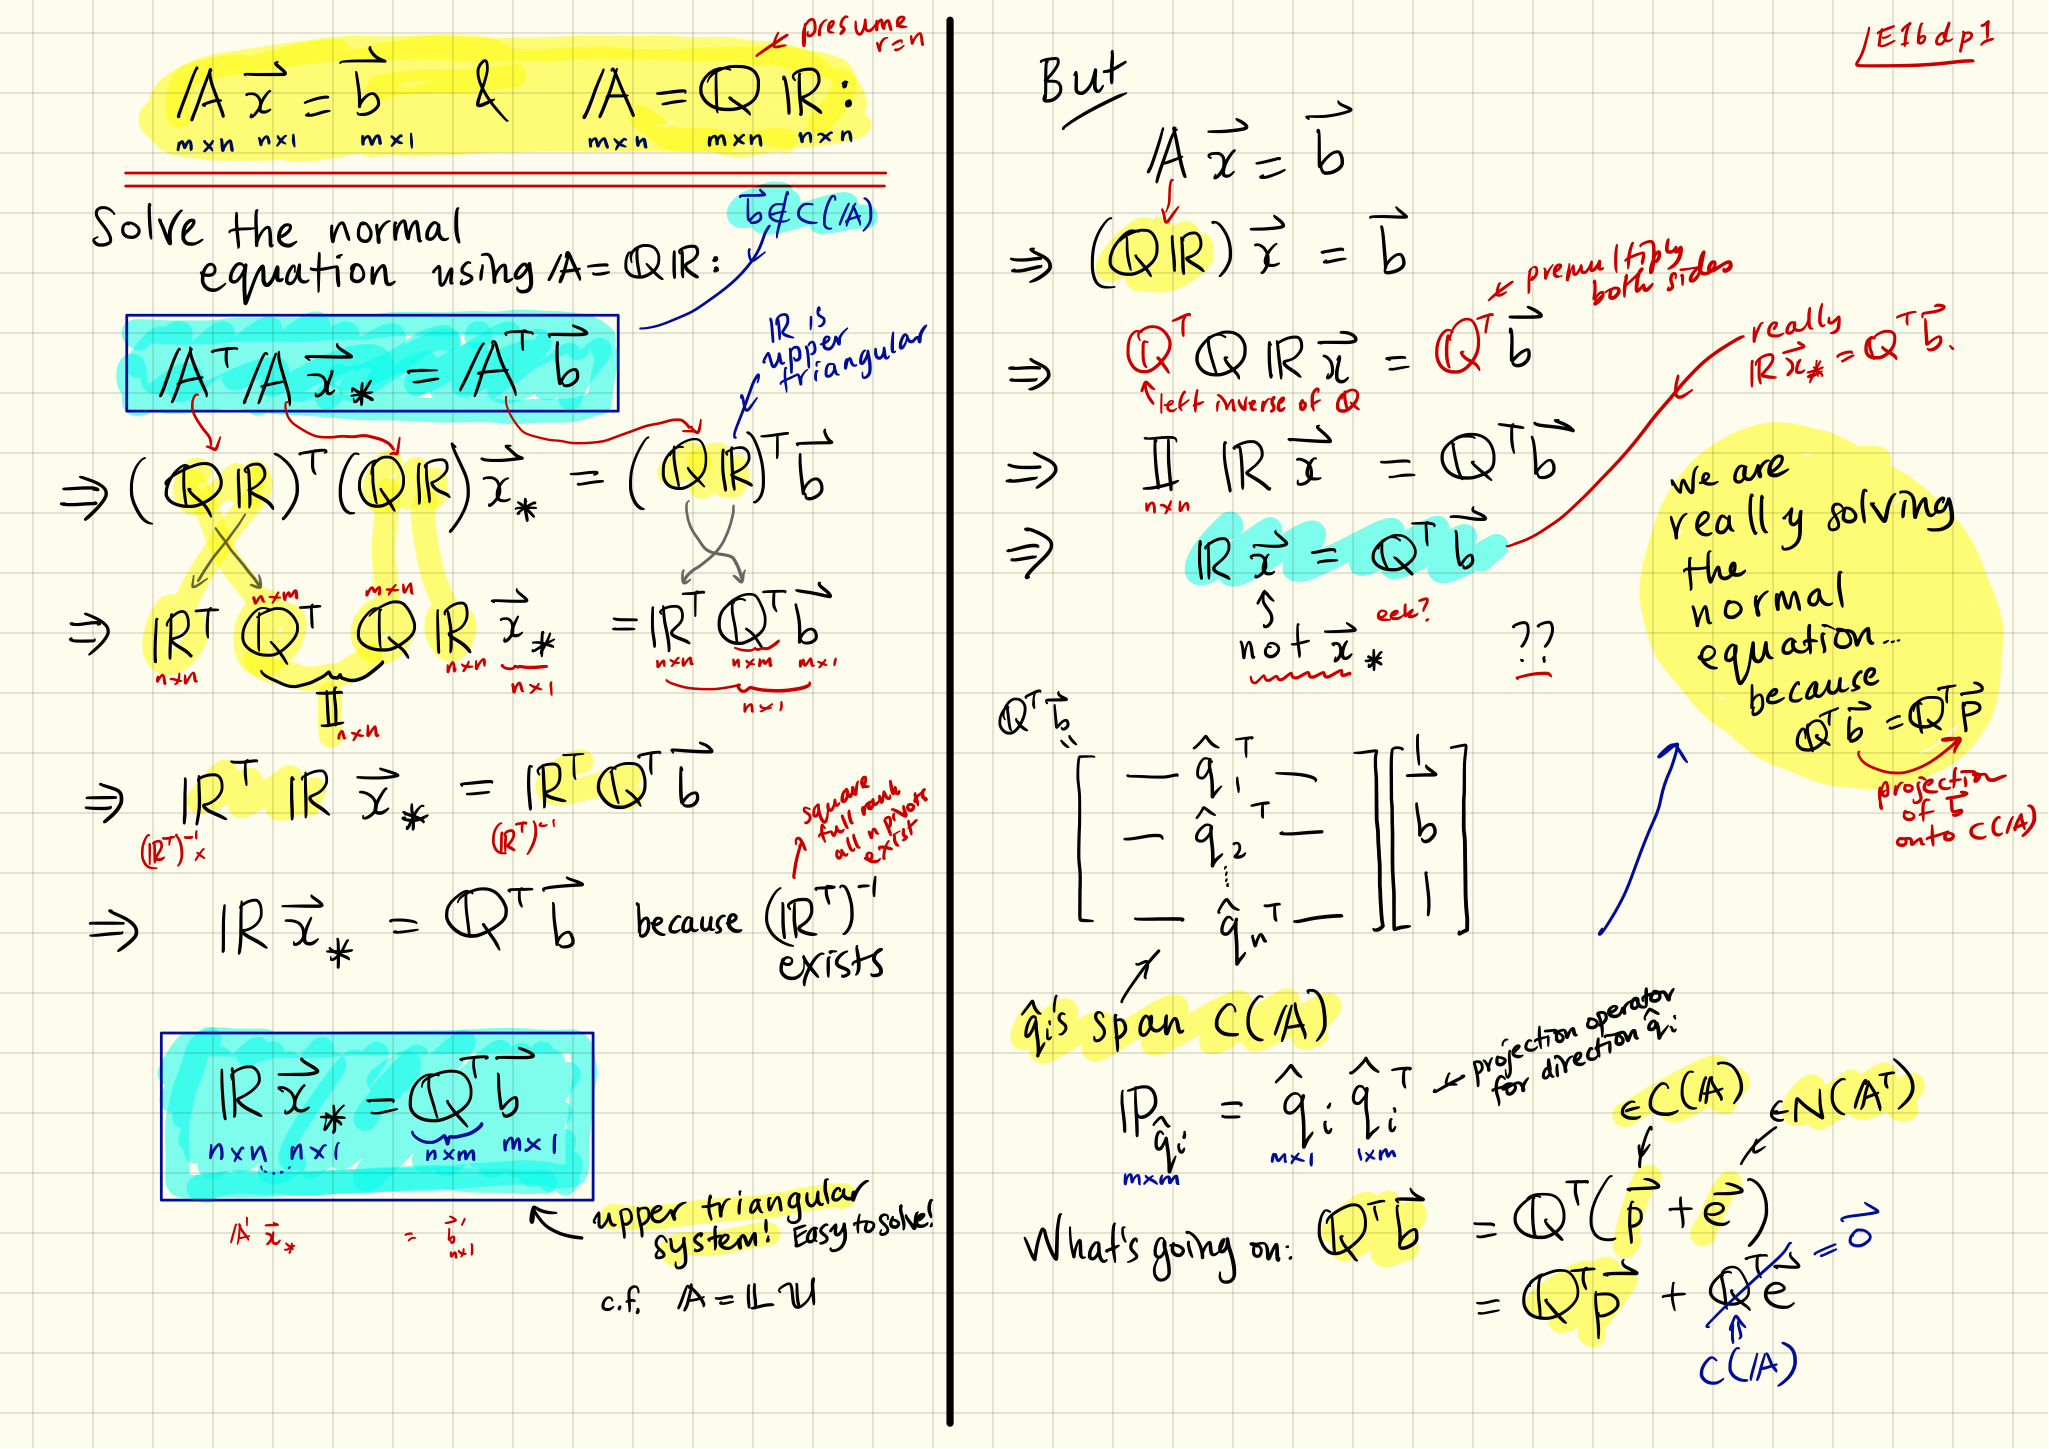 presume
r=n
𝔸x⃗ = b⃗ & 𝔸 = ℚℝ:
m×n n×1 m×1 m×n m×n n×n
Solve the normal
equation using 𝔸 = ℚℝ:
b⃗ ∉ C(𝔸)
𝔸ᵀ𝔸x⃗* = 𝔸ᵀb⃗
ℝ is
upper
triangular
⇒ (ℚℝ)ᵀ(ℚℝ)x⃗* = (ℚℝ)ᵀb⃗
n×m m×n
⇒ ℝᵀℚᵀℚℝx⃗* = ℝᵀℚᵀb⃗
n×n n×n n×1 n×n n×m m×1
𝕀 n×n
n×1
⇒ ℝᵀℝx⃗* = ℝᵀℚᵀb⃗
(ℝᵀ)⁻¹× (ℝᵀ)⁻¹
square
full rank
all n pivots
exist
⇒ ℝx⃗* = ℚᵀb⃗ because (ℝᵀ)⁻¹
exists
ℝx⃗* = ℚᵀb⃗
n×n n×1 n×m m×1
𝔸'x⃗* = b⃗'
n×1
upper triangular
system! Easy to solve!
c.f. 𝔸 = 𝕃𝕌
/E16dp1
But
𝔸x⃗ = b⃗
⇒ (ℚℝ)x⃗ = b⃗
premultiply
both sides
⇒ ℚᵀℚℝx⃗ = ℚᵀb⃗
left inverse of ℚ
really
ℝx⃗* = ℚᵀb⃗.
⇒ 𝕀ℝx⃗ = ℚᵀb⃗
n×n
⇒ ℝx⃗ = ℚᵀb⃗
eek?
not x⃗* ??
we are
really solving
the
normal
equation...
because
ℚᵀb⃗ = ℚᵀp⃗
projection
of b⃗
onto C(𝔸)
ℚᵀb⃗
"
[— q̂₁ᵀ —] [|]
[— q̂₂ᵀ —] [b⃗]
⋮
[— q̂ₙᵀ —] [|]
q̂ᵢ's span C(𝔸)
projection operator
for direction q̂ᵢ
ℙ_q̂ᵢ = q̂ᵢ q̂ᵢᵀ
m×m m×1 1×m
∈C(𝔸) ∈N(𝔸ᵀ)
What's going on: ℚᵀb⃗ = ℚᵀ(p⃗ + e⃗)
= ℚᵀp⃗ + ℚᵀe⃗ = 0⃗
C(𝔸)